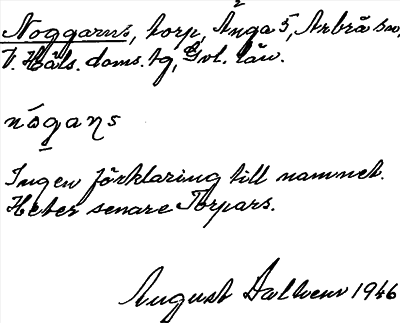 Noggarns, torp, Änga 5, Arbrå sn,
V. Häls. doms. tg, Gvl. län.
nógaɳs
Ingen förklaring till namnet.
Heter senare Torpars.
August 1946